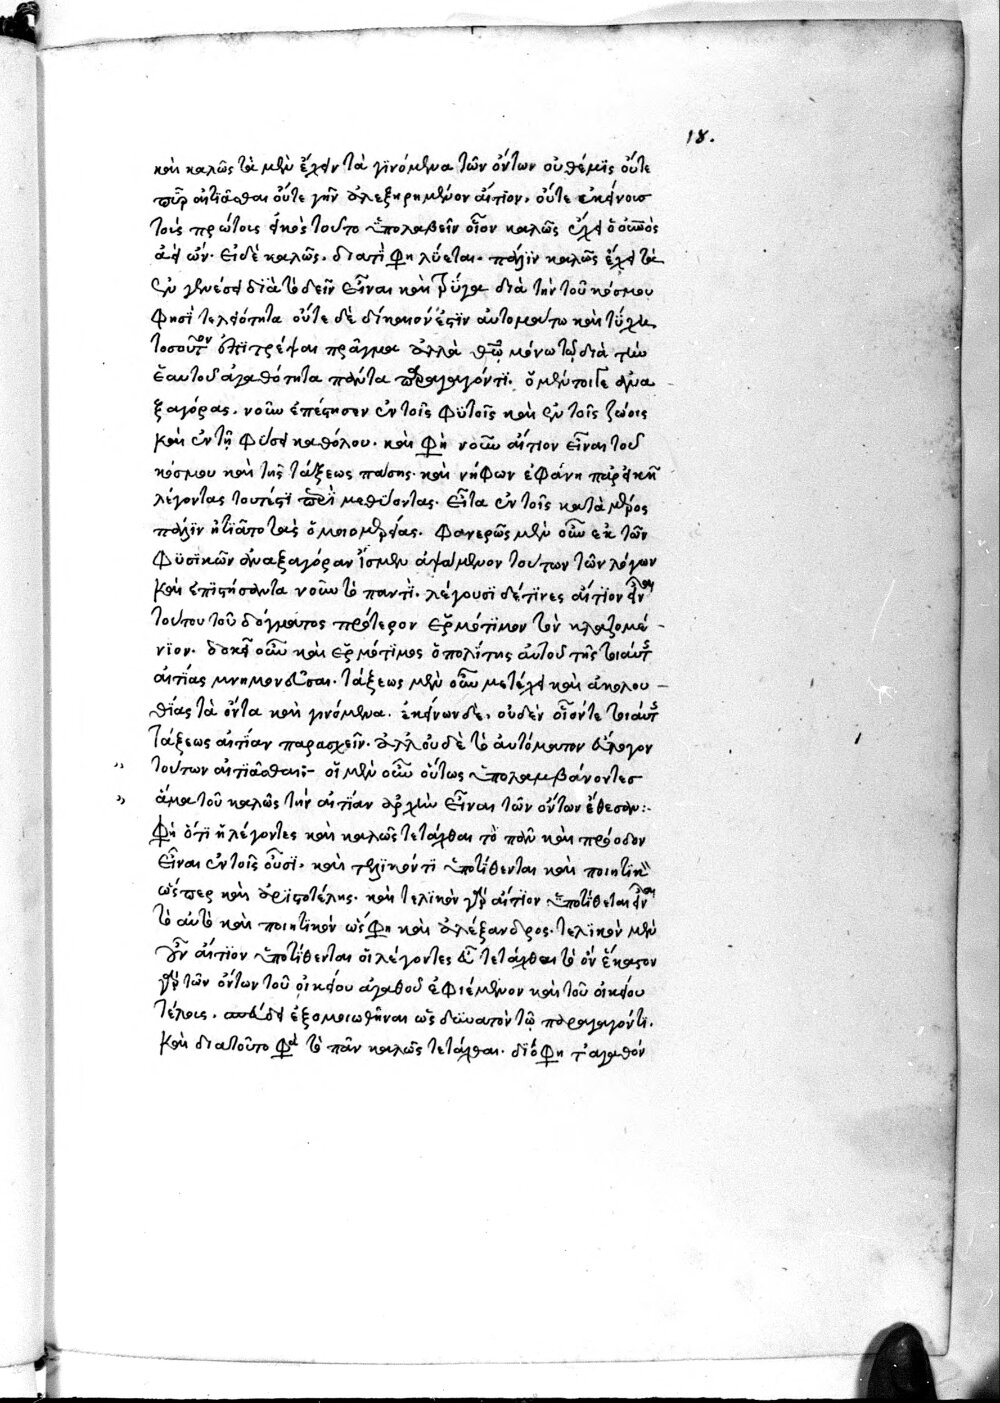 18.
καὶ καλῶς τὰ μὲν ἔχειν τὰ γινόμενα τῶν ὄντων οὐ θέμις οὔτε
πῦρ αἰτιᾶσθαι οὔτε γῆν ἀλεξηρημένον αἴτιον. οὔτε ἐκείνοις
τοῖς πρώτοις εἰκὸς τοῦτο ὑπολαβεῖν οἷον καλῶς ἔχει ὁ
ἀεὶ ὤν. εἰ δὲ καλῶς. διατί φη λύεται. πάλιν καλῶς ἔχει τὰ
ἐν γενέσει διὰ τὸ δεῖν εἶναι καὶ διὰ τὴν τοῦ κόσμου
φησὶ τελειότητα οὔτε δὲ δίκαιον ἐστὶν αὐτομάτω καὶ τύχη
τοσοῦτον ἐπιτρέψαι πρᾶγμα ἀλλὰ θεῷ μόνω τῷ διὰ τὴν
ἑαυτοῦ ἀγαθότητα πάντα παραγαγόντι. ὁ μέντοιγε ἀνα-
ξαγόρας. νοῦν ἐπέστησεν ἐν τοῖς φυτοῖς καὶ ἐν τοῖς ζώοις
καὶ ἐν τῇ φύσει καθόλου. καὶ φη νοῦν αἴτιον εἶναι τοῦ
κόσμου καὶ τῆς τάξεως πάσης. καὶ νήφων ἐφάνη παρ' εἰκῆ
λέγοντας τουτέστι μεθύοντας. εἶτα ἐν τοῖς κατὰ μέρος
πάλιν ᾐτιᾶτο τὰς ὁμοιομερείας. φανερῶς μὲν οὖν ἐκ τῶν
φυσικῶν ἀναξαγόραν ἴσμεν ἁψάμενον τούτων τῶν λόγων
καὶ ἐπιστήσαντα νοῦν τῶ παντί. λέγουσι δέ τινες αἴτιον εἶναι
τούτου τοῦ δόγματος πρότερον ἑρμότιμον τὸν κλαζομέ-
νιον. δοκεῖ οὖν καὶ ἑρμότιμος ὁ πολίτης αὐτοῦ τῆς τοιαύτης
αἰτίας μνημονεῦσαι. τάξεως μὲν οὖν μετέχει καὶ ἀκολου-
θίας τὰ ὄντα καὶ γινόμενα. ἐκείνων δὲ, οὐδὲν οἷόντε τοιαύτης
τάξεως αἰτίαν παρασχεῖν. ἀλλ' οὐδὲ τὸ αὐτόματον εὔλογον
τούτων αἰτιᾶσθαι:- οἱ μὲν οὖν οὕτως ὑπολαμβάνοντες
ἅμα τοῦ καλῶς τὴν αἰτίαν ἀρχὴν εἶναι τῶν ὄντων ἔθεσαν:-
φη ὅτι οἱ λέγοντες καὶ καλῶς τετάχθαι τὸ πᾶν καὶ πρόοδον
εἶναι ἐν τοῖς οὖσι. καὶ τελικόν τι ὑποτίθενται καὶ ποιητικὸν
ὥσπερ καὶ ἀριστοτέλης. καὶ τελικὸν γὰρ αἴτιον ὑποτίθεται εἶναι
τὸ αὐτὸ καὶ ποιητικὸν ὥς φη καὶ ἀλέξανδρος. τελικὸν μὲν
οὖν αἴτιον ὑποτίθενται οἱ λέγοντες εὖ τετάχθαι τὸ ὂν ἕκαστον
γὰρ τῶν ὄντων τοῦ οἰκείου ἀγαθοῦ ἐφιέμενον καὶ τοῦ οἰκείου
τέλους. ἐξομοιωθῆναι ὡς δυνατὸν τῷ παραγαγόντι.
καὶ διατοῦτο φασὶ τὸ πᾶν καλῶς τετάχθαι. διό φη τἀγαθόν